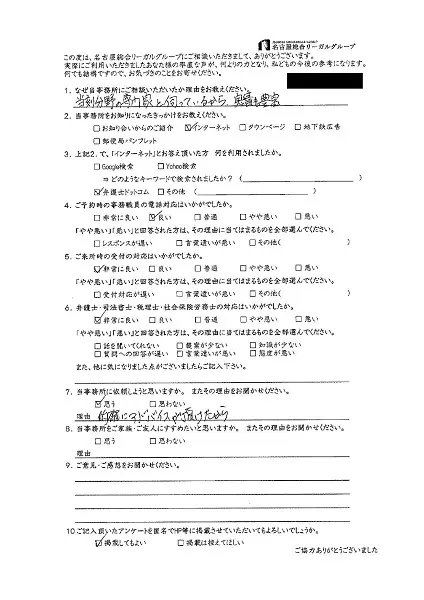 名古屋総合リーガルグループ
この度は、名古屋総合リーガルグループにご相談いただきまして、ありがとうございます。
実際にご利用いただきましたあなた様の率直な声が、何よりの力となり、私どもの今後の参考になります。
何でも結構ですので、お気づきのことをお寄せください。
1. なぜ当事務所にご相談いただいたか理由をお教えください。
当該分野の専門家と伺っているから、実績も豊富
2. 当事務所をお知りになったきっかけをお教えください。
□お知り合いからのご紹介 ☑インターネット □タウンページ □地下鉄広告
□郵便局パンフレット
3. 上記2.で、「インターネット」とお答え頂いた方 何を利用されましたか。
□Google検索 □Yahoo検索
⇒どのようなキーワードで検索されましたか？( )
☑弁護士ドットコム □その他 ( )
4. ご予約時の事務職員の電話対応はいかがでしたか。
□非常に良い ☑良い □普通 □やや悪い □悪い
「やや悪い」「悪い」と回答された方は、その理由に当てはまるものを全部選んでください。
□レスポンスが遅い □言葉遣いが悪い □その他( )
5. ご来所時の受付の対応はいかがでしたか。
☑非常に良い □良い □普通 □やや悪い □悪い
「やや悪い」「悪い」と回答された方は、その理由に当てはまるものを全部選んでください。
□受付対応が遅い □言葉遣いが悪い □その他( )
6. 弁護士・司法書士・税理士・社会保険労務士の対応はいかがでしたか。
☑非常に良い □良い □普通 □やや悪い □悪い
「やや悪い」「悪い」と回答された方は、その理由に当てはまるものを全部選んでください。
□話を聞いてくれない □提案が少ない □知識が少ない
□質問への回答が遅い □言葉遣いが悪い □態度が悪い
また、他に気になりました点がございましたらご記入下さい。
7. 当事務所に依頼しようと思いますか。 またその理由をお聞かせください。
☑思う □思わない
理由 的確にアドバイスが頂けたから
8. 当事務所をご家族・ご友人にすすめたいと思いますか。 またその理由をお聞かせください。
□思う □思わない
理由
9. ご意見・ご感想をお聞かせください。
10 ご記入頂いたアンケートを匿名でHP等に掲載させていただいてもよろしいでしょうか。
☑掲載してもよい □掲載は控えてほしい
ご協力ありがとうございました